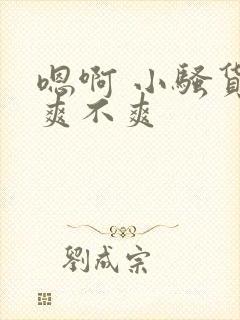 嗯啊 小骚货
爽不爽
劉成宗